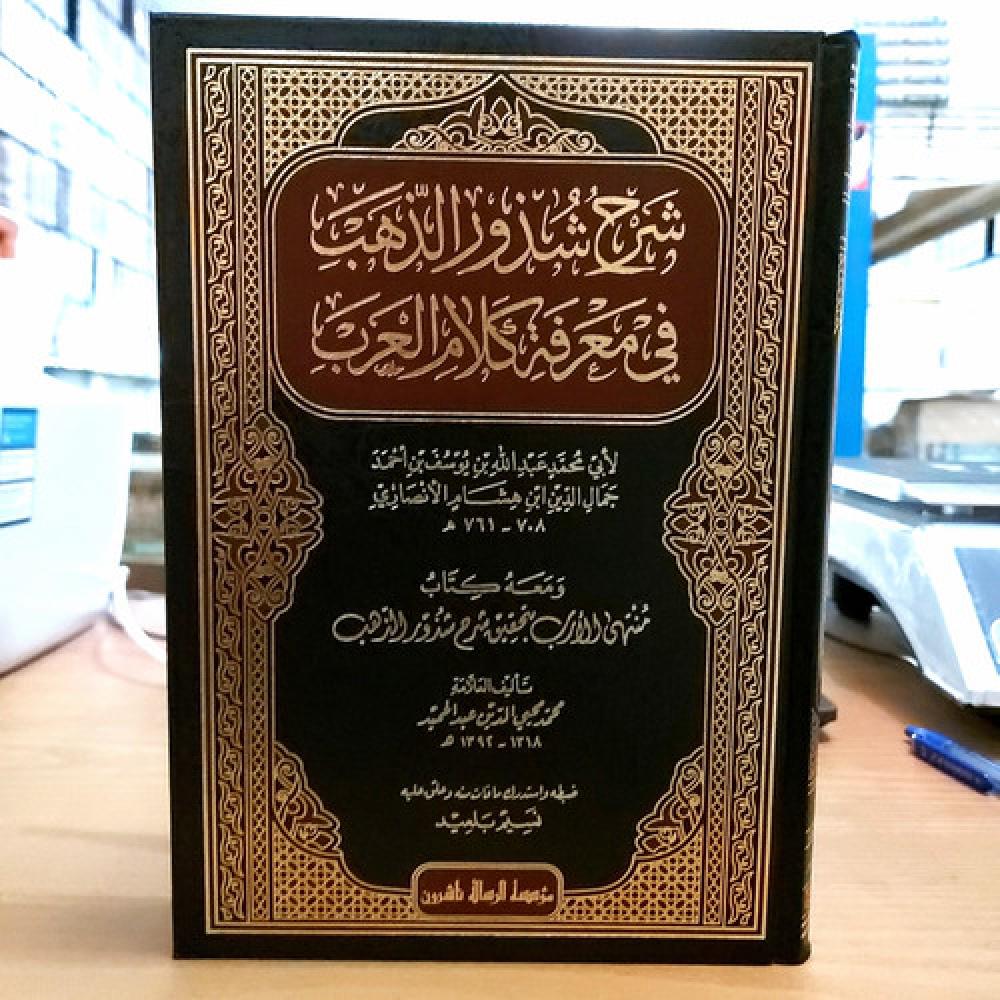 شَرْحُ شُذُورِ الذَّهَبِ
فِي مَعْرِفَةِ كَلَامِ الْعَرَبِ
لأبي محمد عبد الله بن يوسف بن أحمد
جمال الدين ابن هشام الأنصاري
٧٠٨ - ٧٦١ هـ
ومعه كتاب
منتهى الأرب بتحقيق شرح شذور الذهب
تأليف العلامة
محمد محيي الدين عبد الحميد
١٣١٨ - ١٣٩٢ هـ
ضبطه واستدرك ما فات منه وعلق عليه
نسيم بلعيد
مؤسسة الرسالة ناشرون